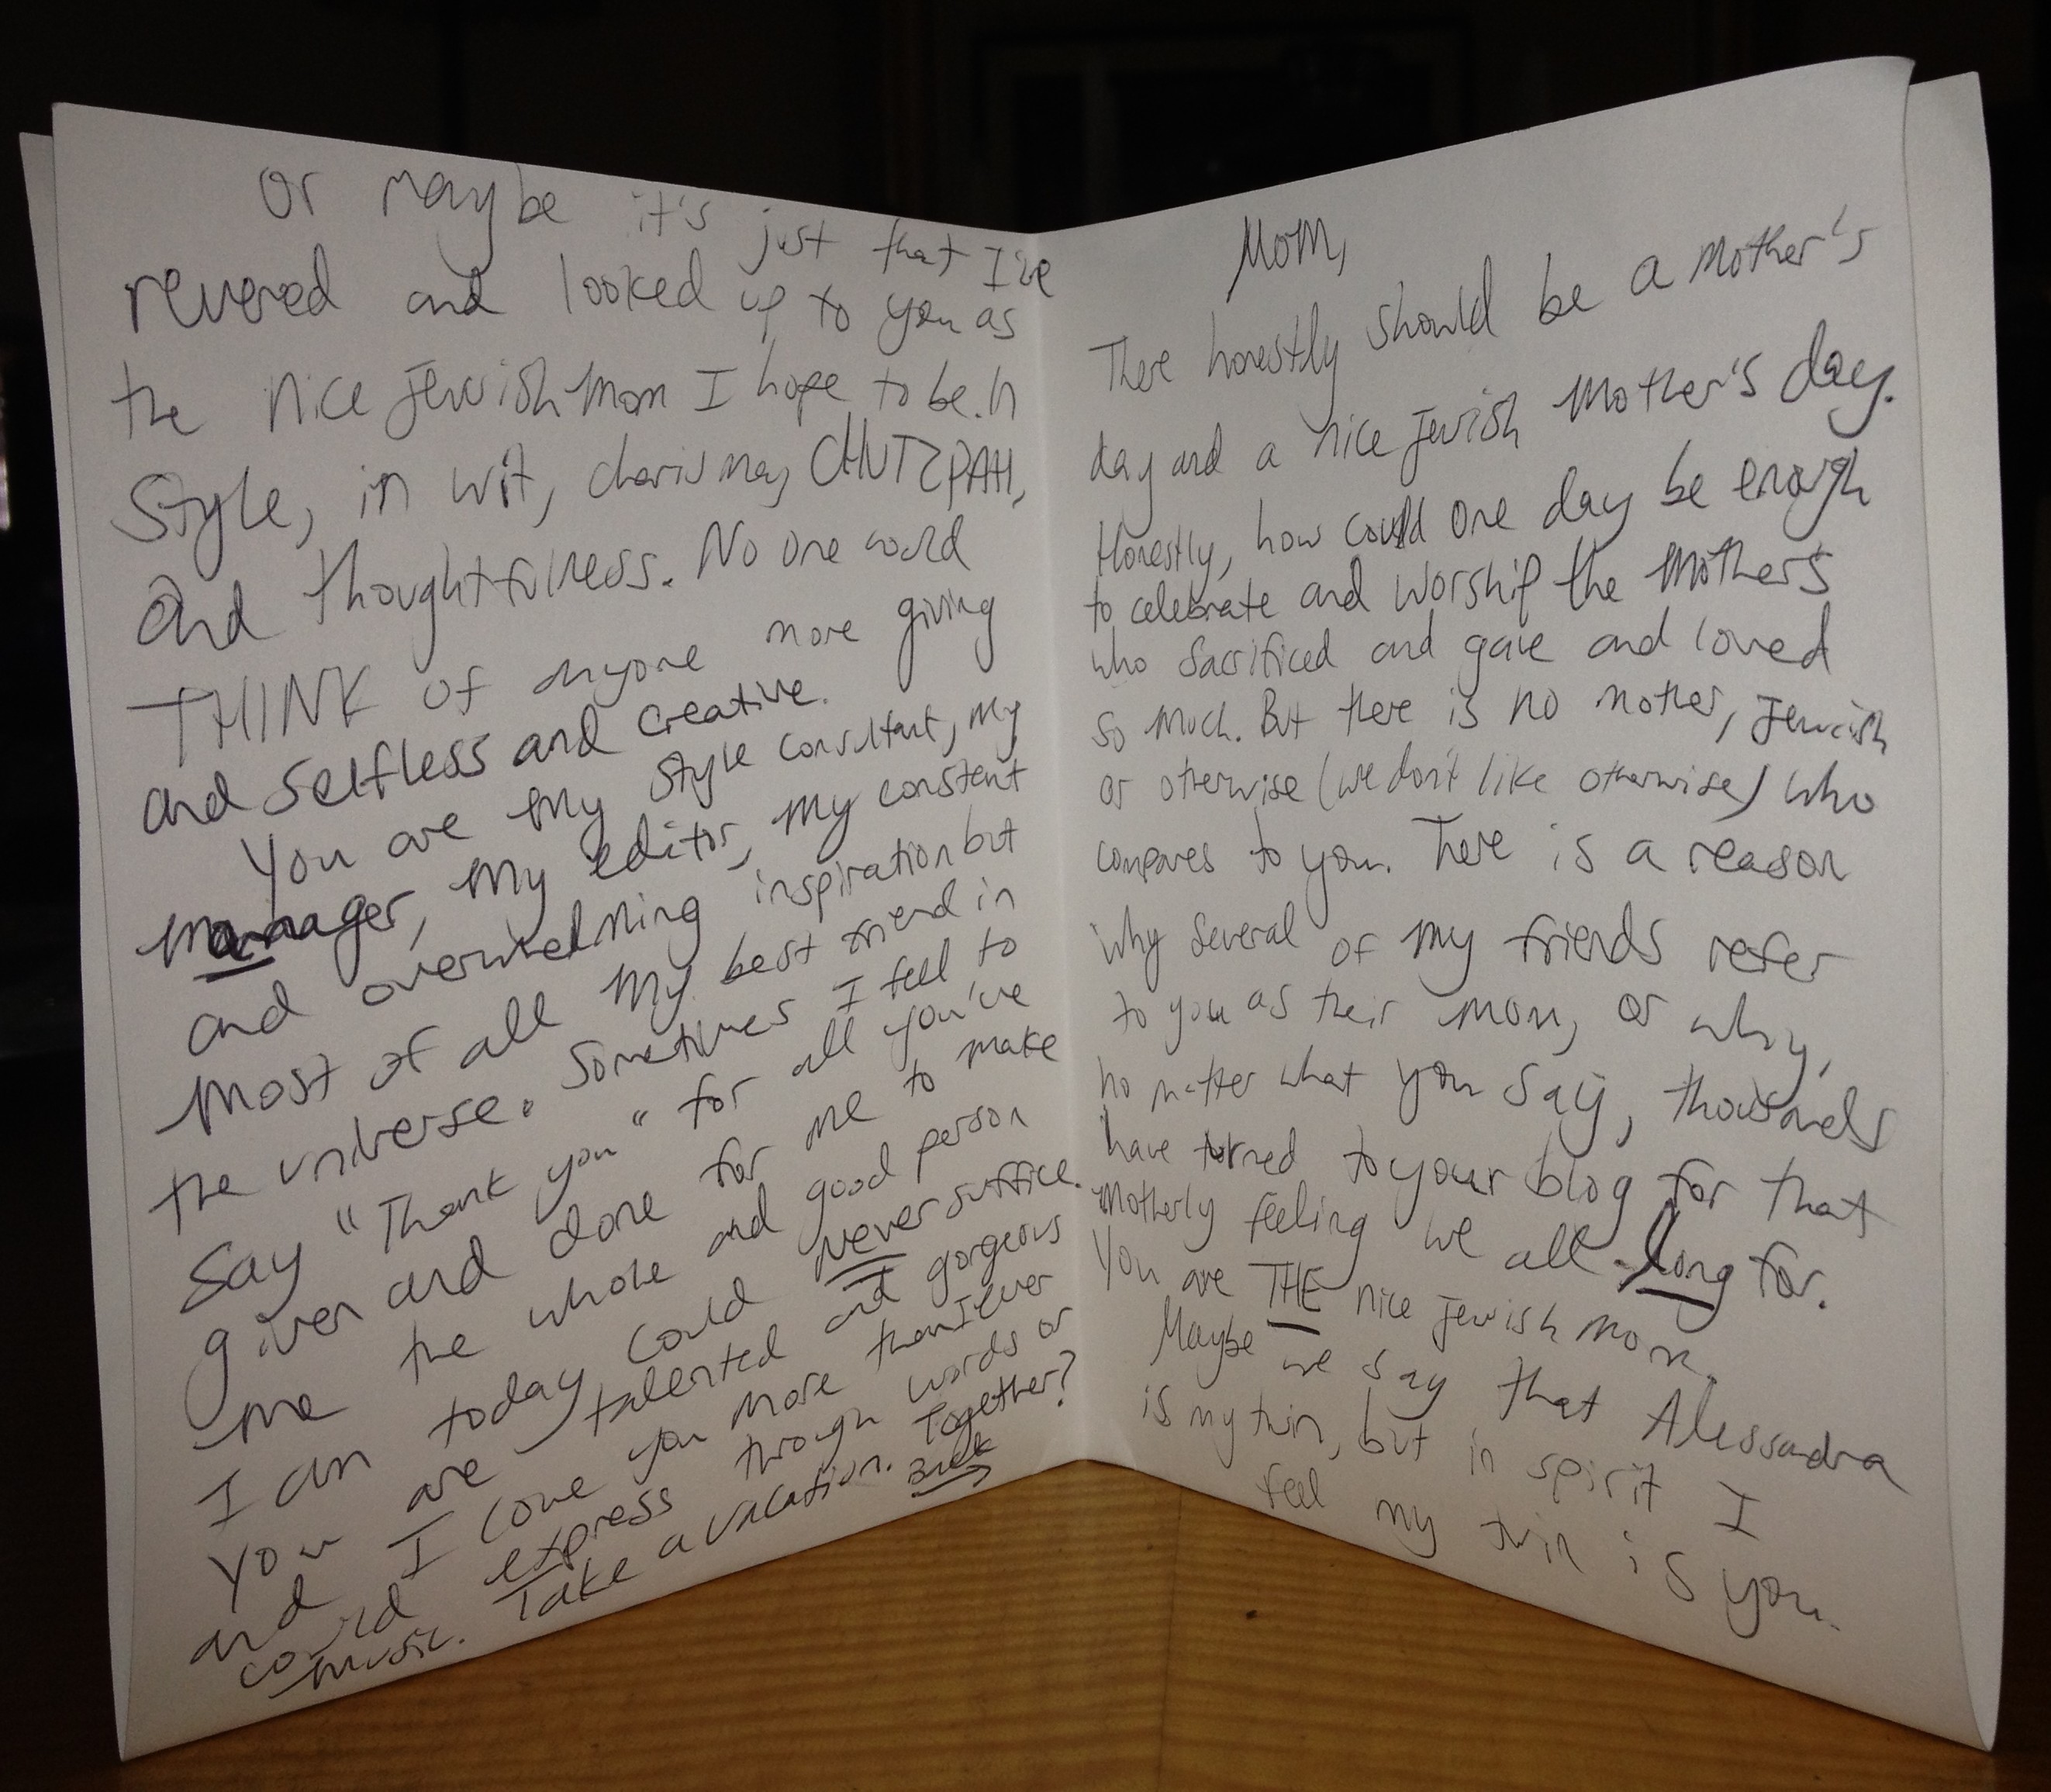 Mom,
There honestly should be a Mother's
day and a nice Jewish Mother's day.
Honestly, how could one day be enough
to celebrate and worship the Mothers
who sacrificed and gave and loved
so much. But there is no mother, Jewish
or otherwise (we don't like otherwise) who
compares to you. There is a reason
why several of my friends refer
to you as their mom, or why,
no matter what you say, thousands
have turned to your blog for that
Motherly feeling we all long for.
You are THE nice Jewish mom.
Maybe we say that Alessandra
is my twin, but in spirit I
feel my twin is you.
Or maybe it's just that I've
revered and looked up to you as
the nice Jewish mom I hope to be. In
Style, in wit, charisma, CHUTZPAH,
and thoughtfulness. No one could
THINK of anyone more giving
and selfless and creative.
You are my style consultant, my
manager, my editor, my constant
and overwhelming inspiration but
most of all my best friend in
the universe. Sometimes I feel to
say "Thank you" for all you've
given and done for me to make
me the whole and good person
I am today could never suffice.
You are talented and gorgeous
and I love you more than I ever
could express through words or
music. Take a vacation. Together?